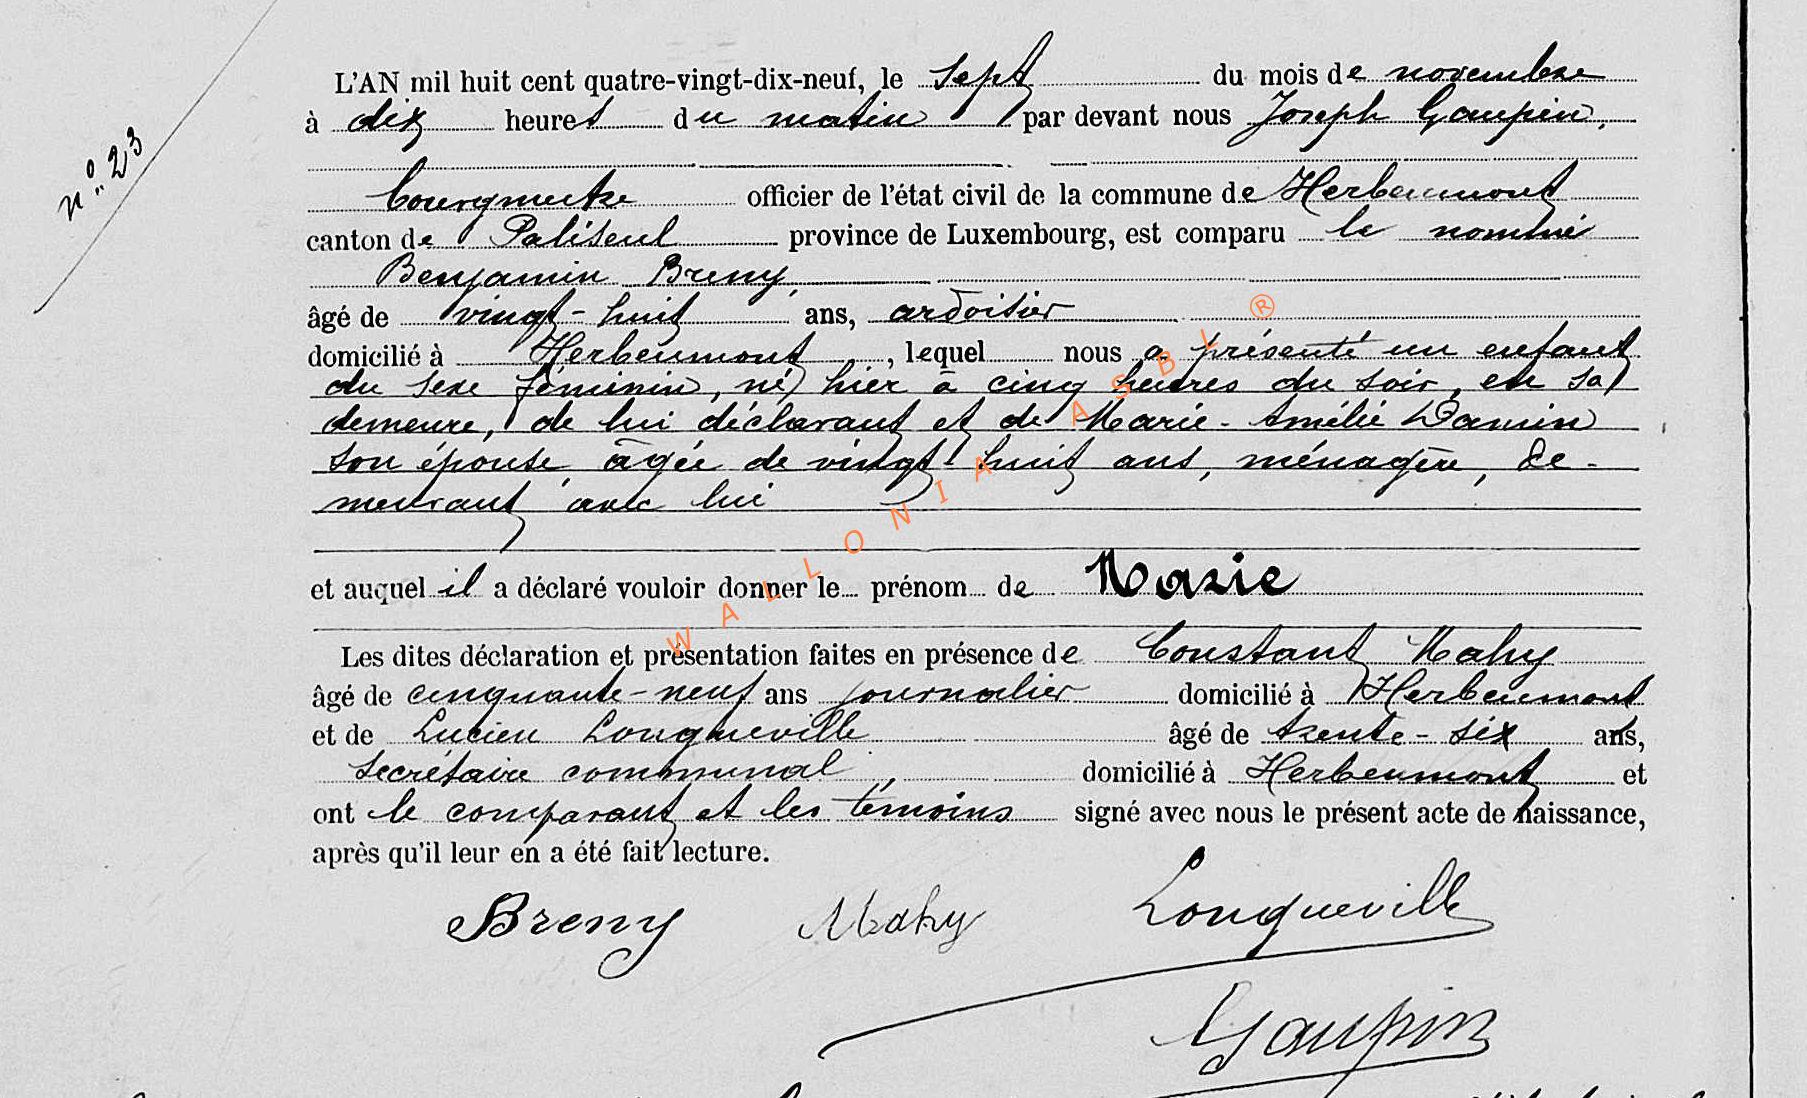 n° 23
L'AN mil huit cent quatre-vingt-dix-neuf, le sept du mois de novembre
à dix heures du matin par devant nous Joseph Gaupin,
Bourgmestre officier de l'état civil de la commune de Herbeumont
canton de Paliseul province de Luxembourg, est comparu le nommé
Benjamin Breny,
âgé de vingt-huit ans, ardoisier
domicilié à Herbeumont, lequel nous a présenté un enfant
du sexe féminin, né hier à cinq heures du soir, en sa
demeure, de lui déclarant et de Marie-Amélie Damin
son épouse âgée de vingt-huit ans, ménagère, de-
meurant avec lui
et auquel il a déclaré vouloir donner le prénom de Marie
Les dites déclaration et présentation faites en présence de Constant Mahy
âgé de cinquante-neuf ans journalier domicilié à Herbeumont
et de Lucien Longueville âgé de trente-six ans,
secrétaire communal, domicilié à Herbeumont et
ont le comparant et les témoins signé avec nous le présent acte de naissance,
après qu'il leur en a été fait lecture.
Breny Mahy Longueville
Gaupin
WALLONIA ASBL ®